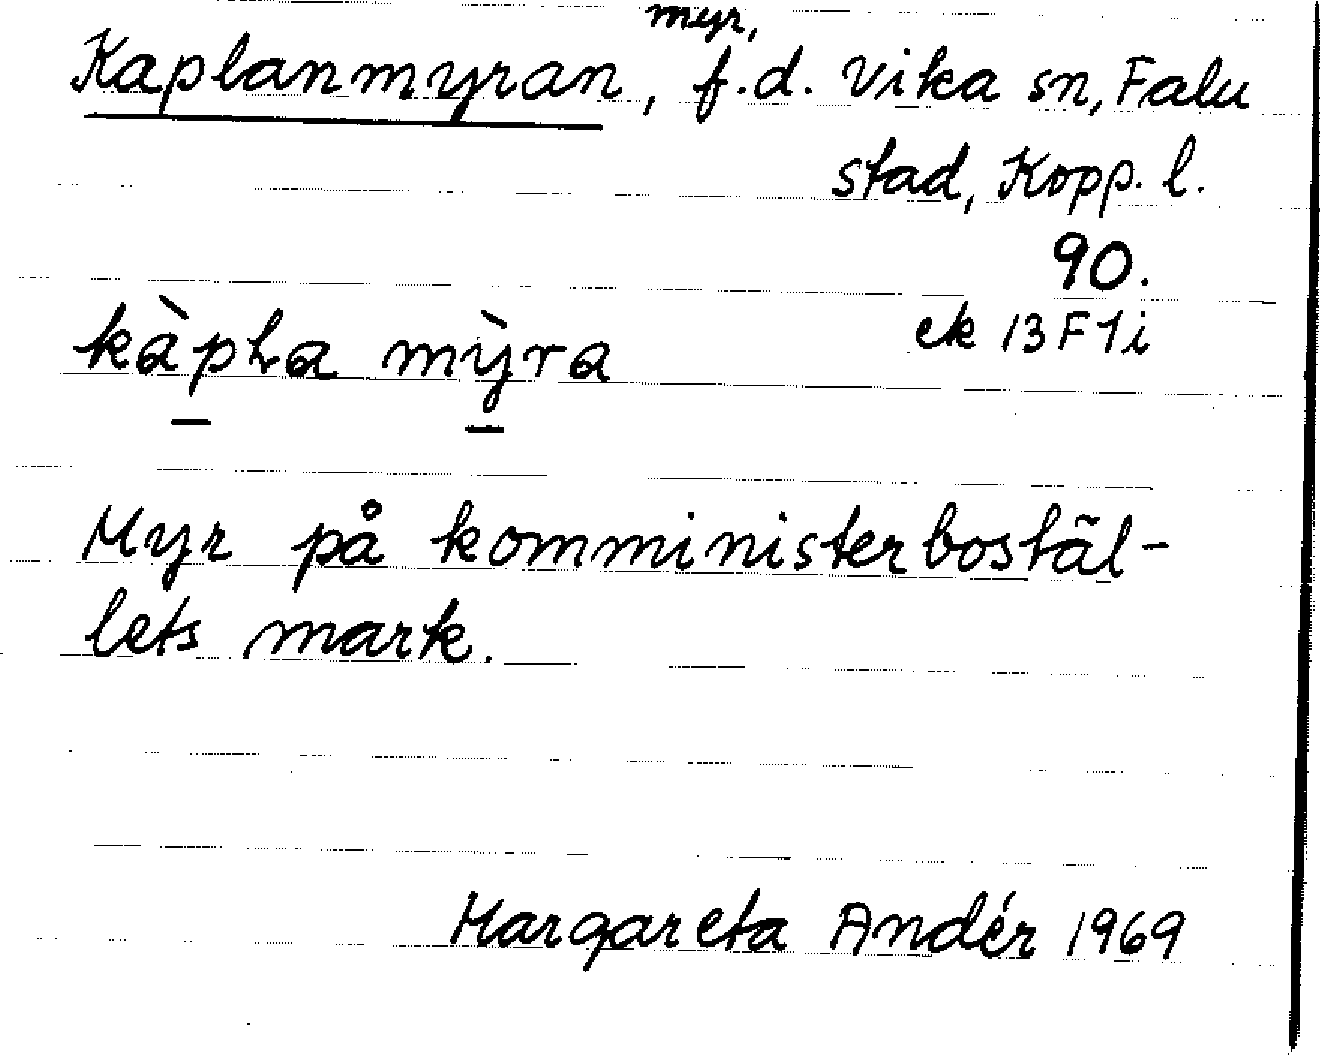 myr,
Kaplanmyran, f.d. Vika sn, Falu
stad, Kopp. l.
90.
ek 13F1i
mỳra
Myr på komministerbostäl-
lets mark.
Margareta Andér 1969